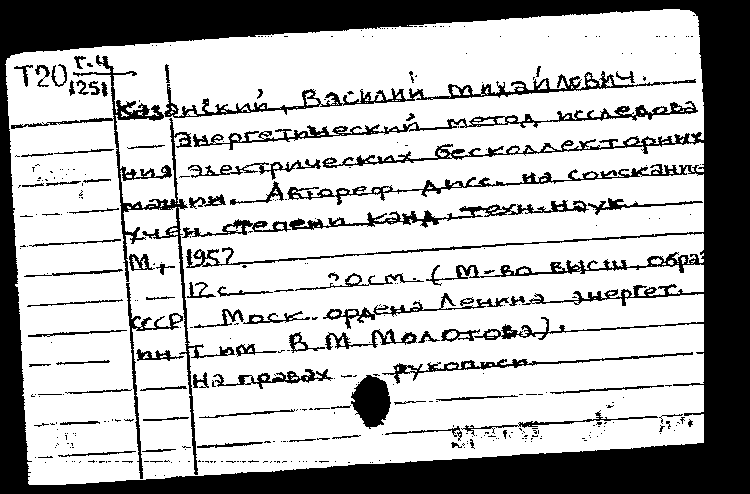 Т20 Г.4
1251
Казанский, Василий Михайлович.
Энергетический метод исследова
ния электрических бесколлекторных
машин. Автореф. дисс. на соискание
учен. степени канд. техн. наук.
М., 1957.
12 с. 20 см. (М-во высш. образ
СССР. Моск. ордена Ленина энергет.
ин-т им В.М. Молотова).
На правах рукописи.